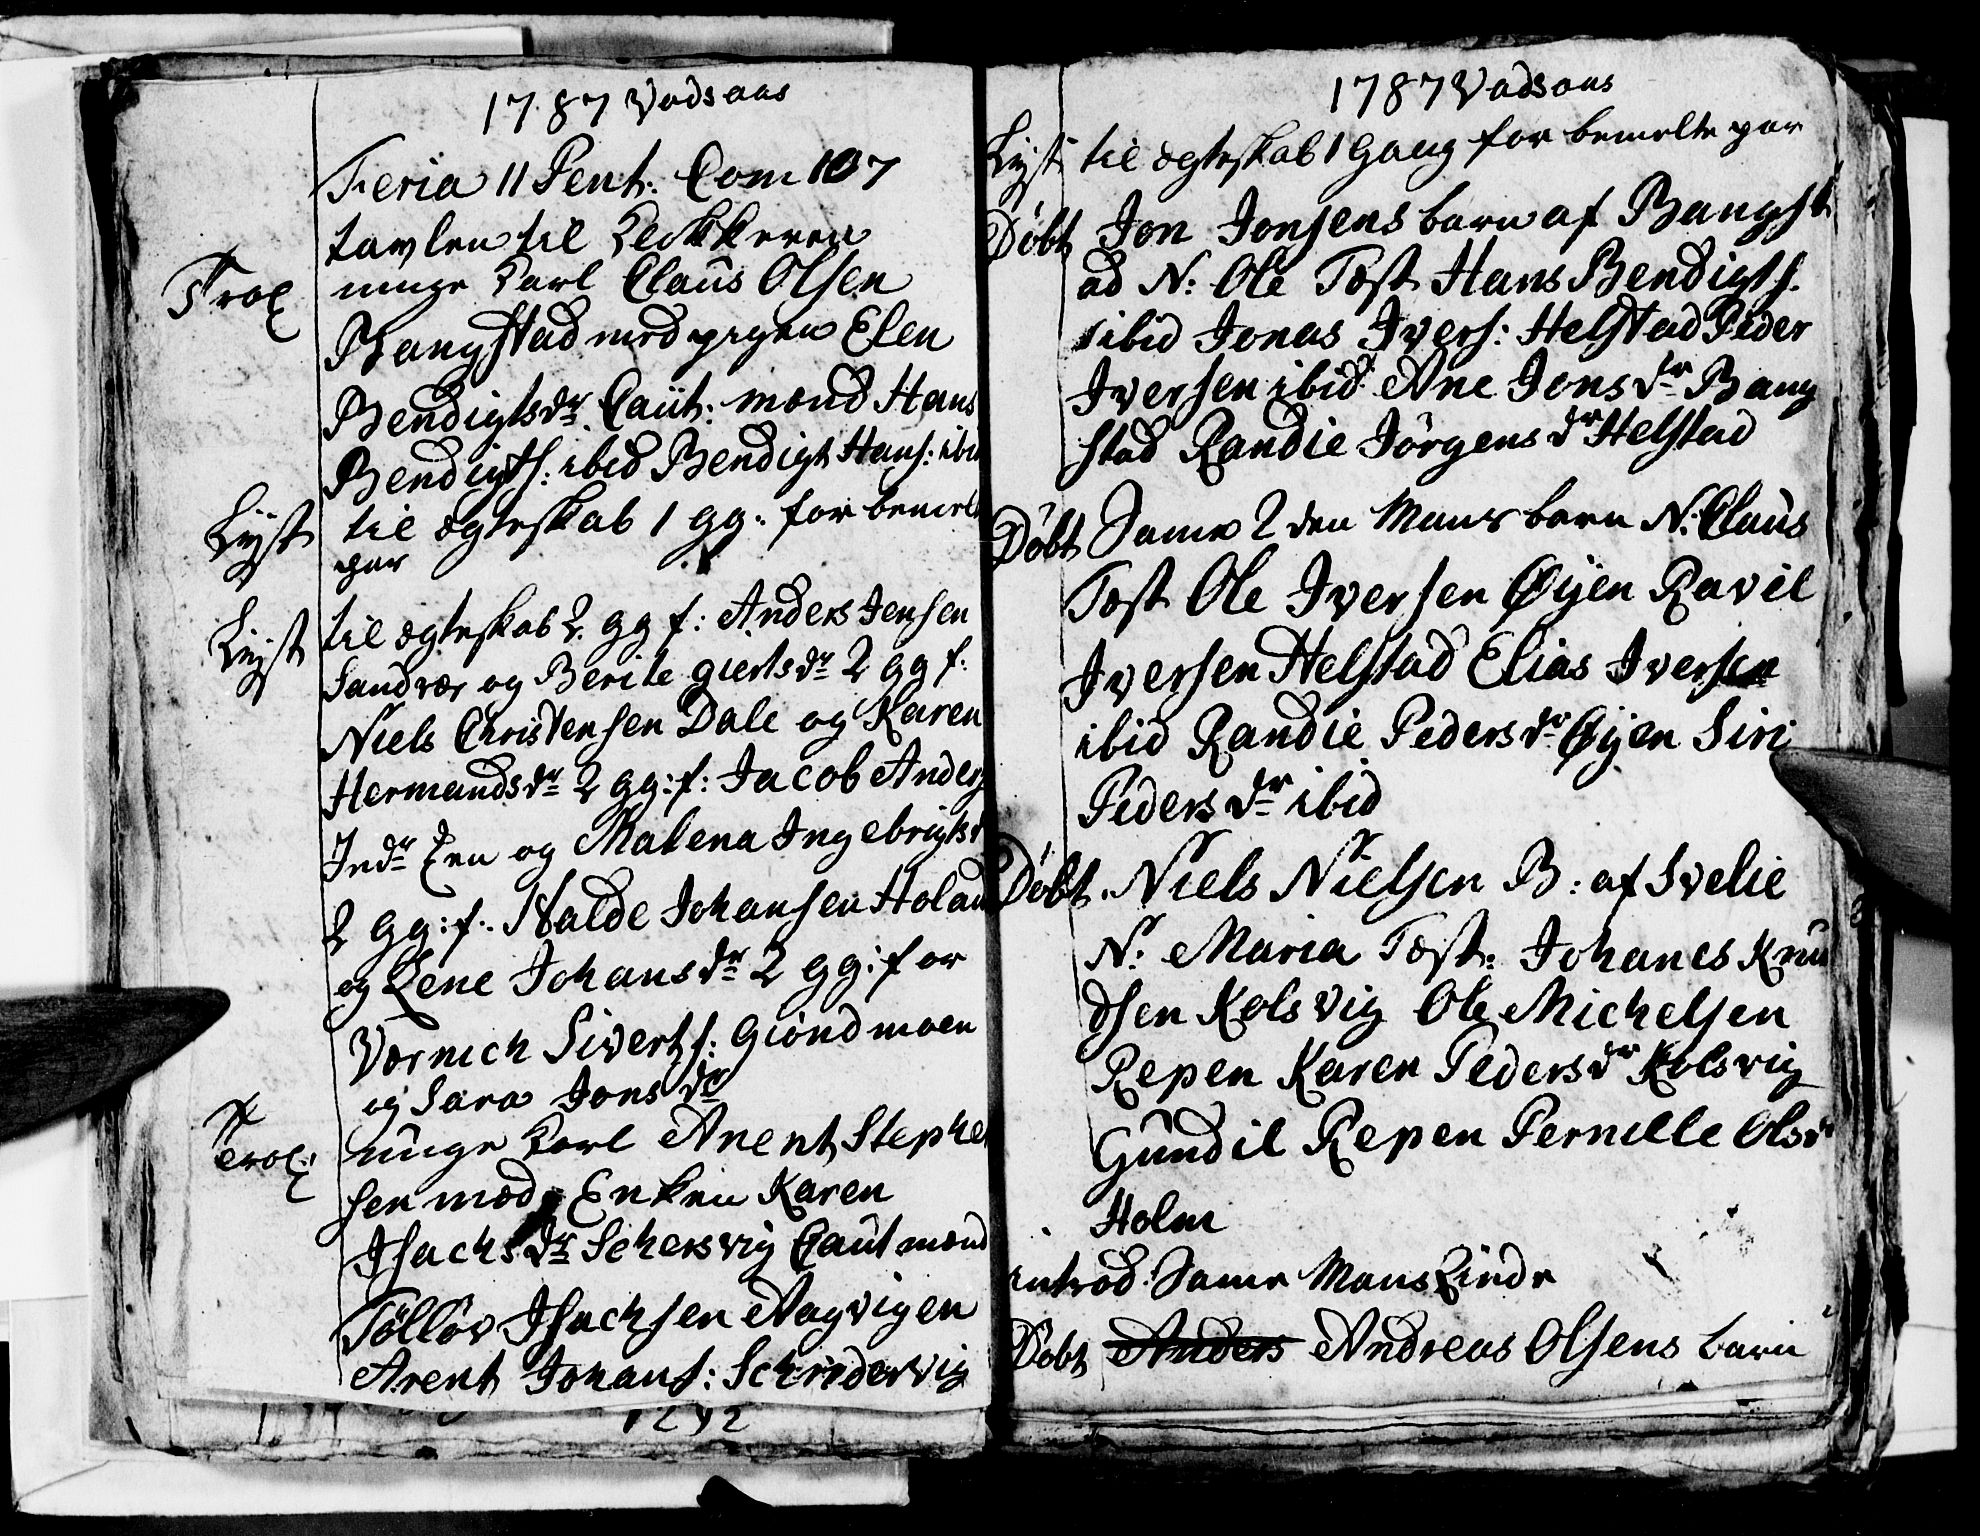 1787 Vadsaas
Feria 11 Pent. Com 107
tavlen til Klokkeren
Trol unge Karl Claus Olsen
Bangstad med pigen Elen
Bendigtsdr. Caut: mænd Hans
Bendigts: ibid Bendigt Hans: ibid
Lyst til ægteskab 1 gg. for bemelte
par
Lyst til ægteskab 2 gg f: Anders Jensen
Sandvær og Berite giertsdr 2 gg f.
Niels Christensen Dale og Karen
Hermandsdr 2 gg: f: Jacob Anders
Indr og Malena Ingebrigtsd
2 gg: f. Halde Johansen Holand
og Lene Johansdr 2 gg: for
Værnich Siverts: Giøndmoen
og Sara Jonsdr
Trol: unge Karl Arent Stephen
sen med Enken Karen
Isachsdr Schersvig Caut mænd
Tølløv Isachsen Aagvigen
Arent Johans: Schredersvig
1787 Vadsaas
Lyst til ægteskab 1 Gang for bemelte par
Døbt Jon Jonsens barn af Bangst
ad N: Ole Test Hans Bendigts.
ibid Jonas Ivers: Helstad Peder
Iversen ibid Ane Jonsdr Bang
stad Randie Jørgensdr Helstad
Døbt Same 2den Mans barn N: Claus
Test Ole Iversen Øyen Ravel
Iversen Helstad Elias Iversen
ibid Randie Pedersdr Øyen Siri
Pedersdr ibid
Døbt Niels Nielsen B: af Svelie
N: Maria Test: Johanes Knu
dsen Kolsvig Ole Michelsen
Repen Karen Pedersdr Kolsvig
Gundil Repen Pernille Olsdr
Holm
introd. Same Mans Qinde
Døbt Anders Andreas Olsens barn